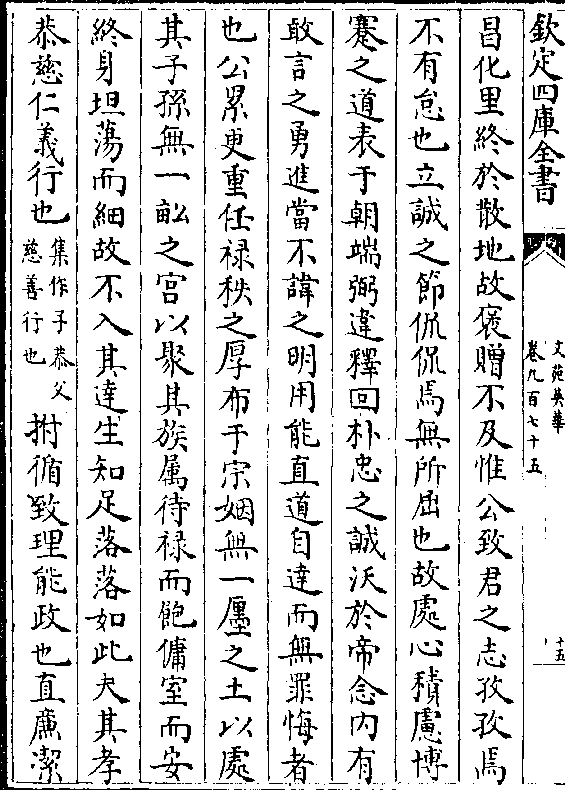 欽定四庫全書
文苑英華
卷九百七十五
十五
昌化里終於散地故褒贈不及惟公致君之志孜孜焉
不有怠也立誠之節侃侃焉無所屈也故處心積慮博
蹇之道表于朝端弼違釋回朴忠之誠沃於帝念内有
敢言之勇進當不諱之明用能直道自達而無罪悔者
也公累更重任禄秩之厚布于宗姻無一廛之土以處
其子孫無一畝之宫以聚其族属待禄而飽傭室而安
終身坦蕩而細故不入其達生知足落落如此夫其孝
恭慈仁義行也
集作子恭父
慈善行也
拊循致理能政也直廉潔